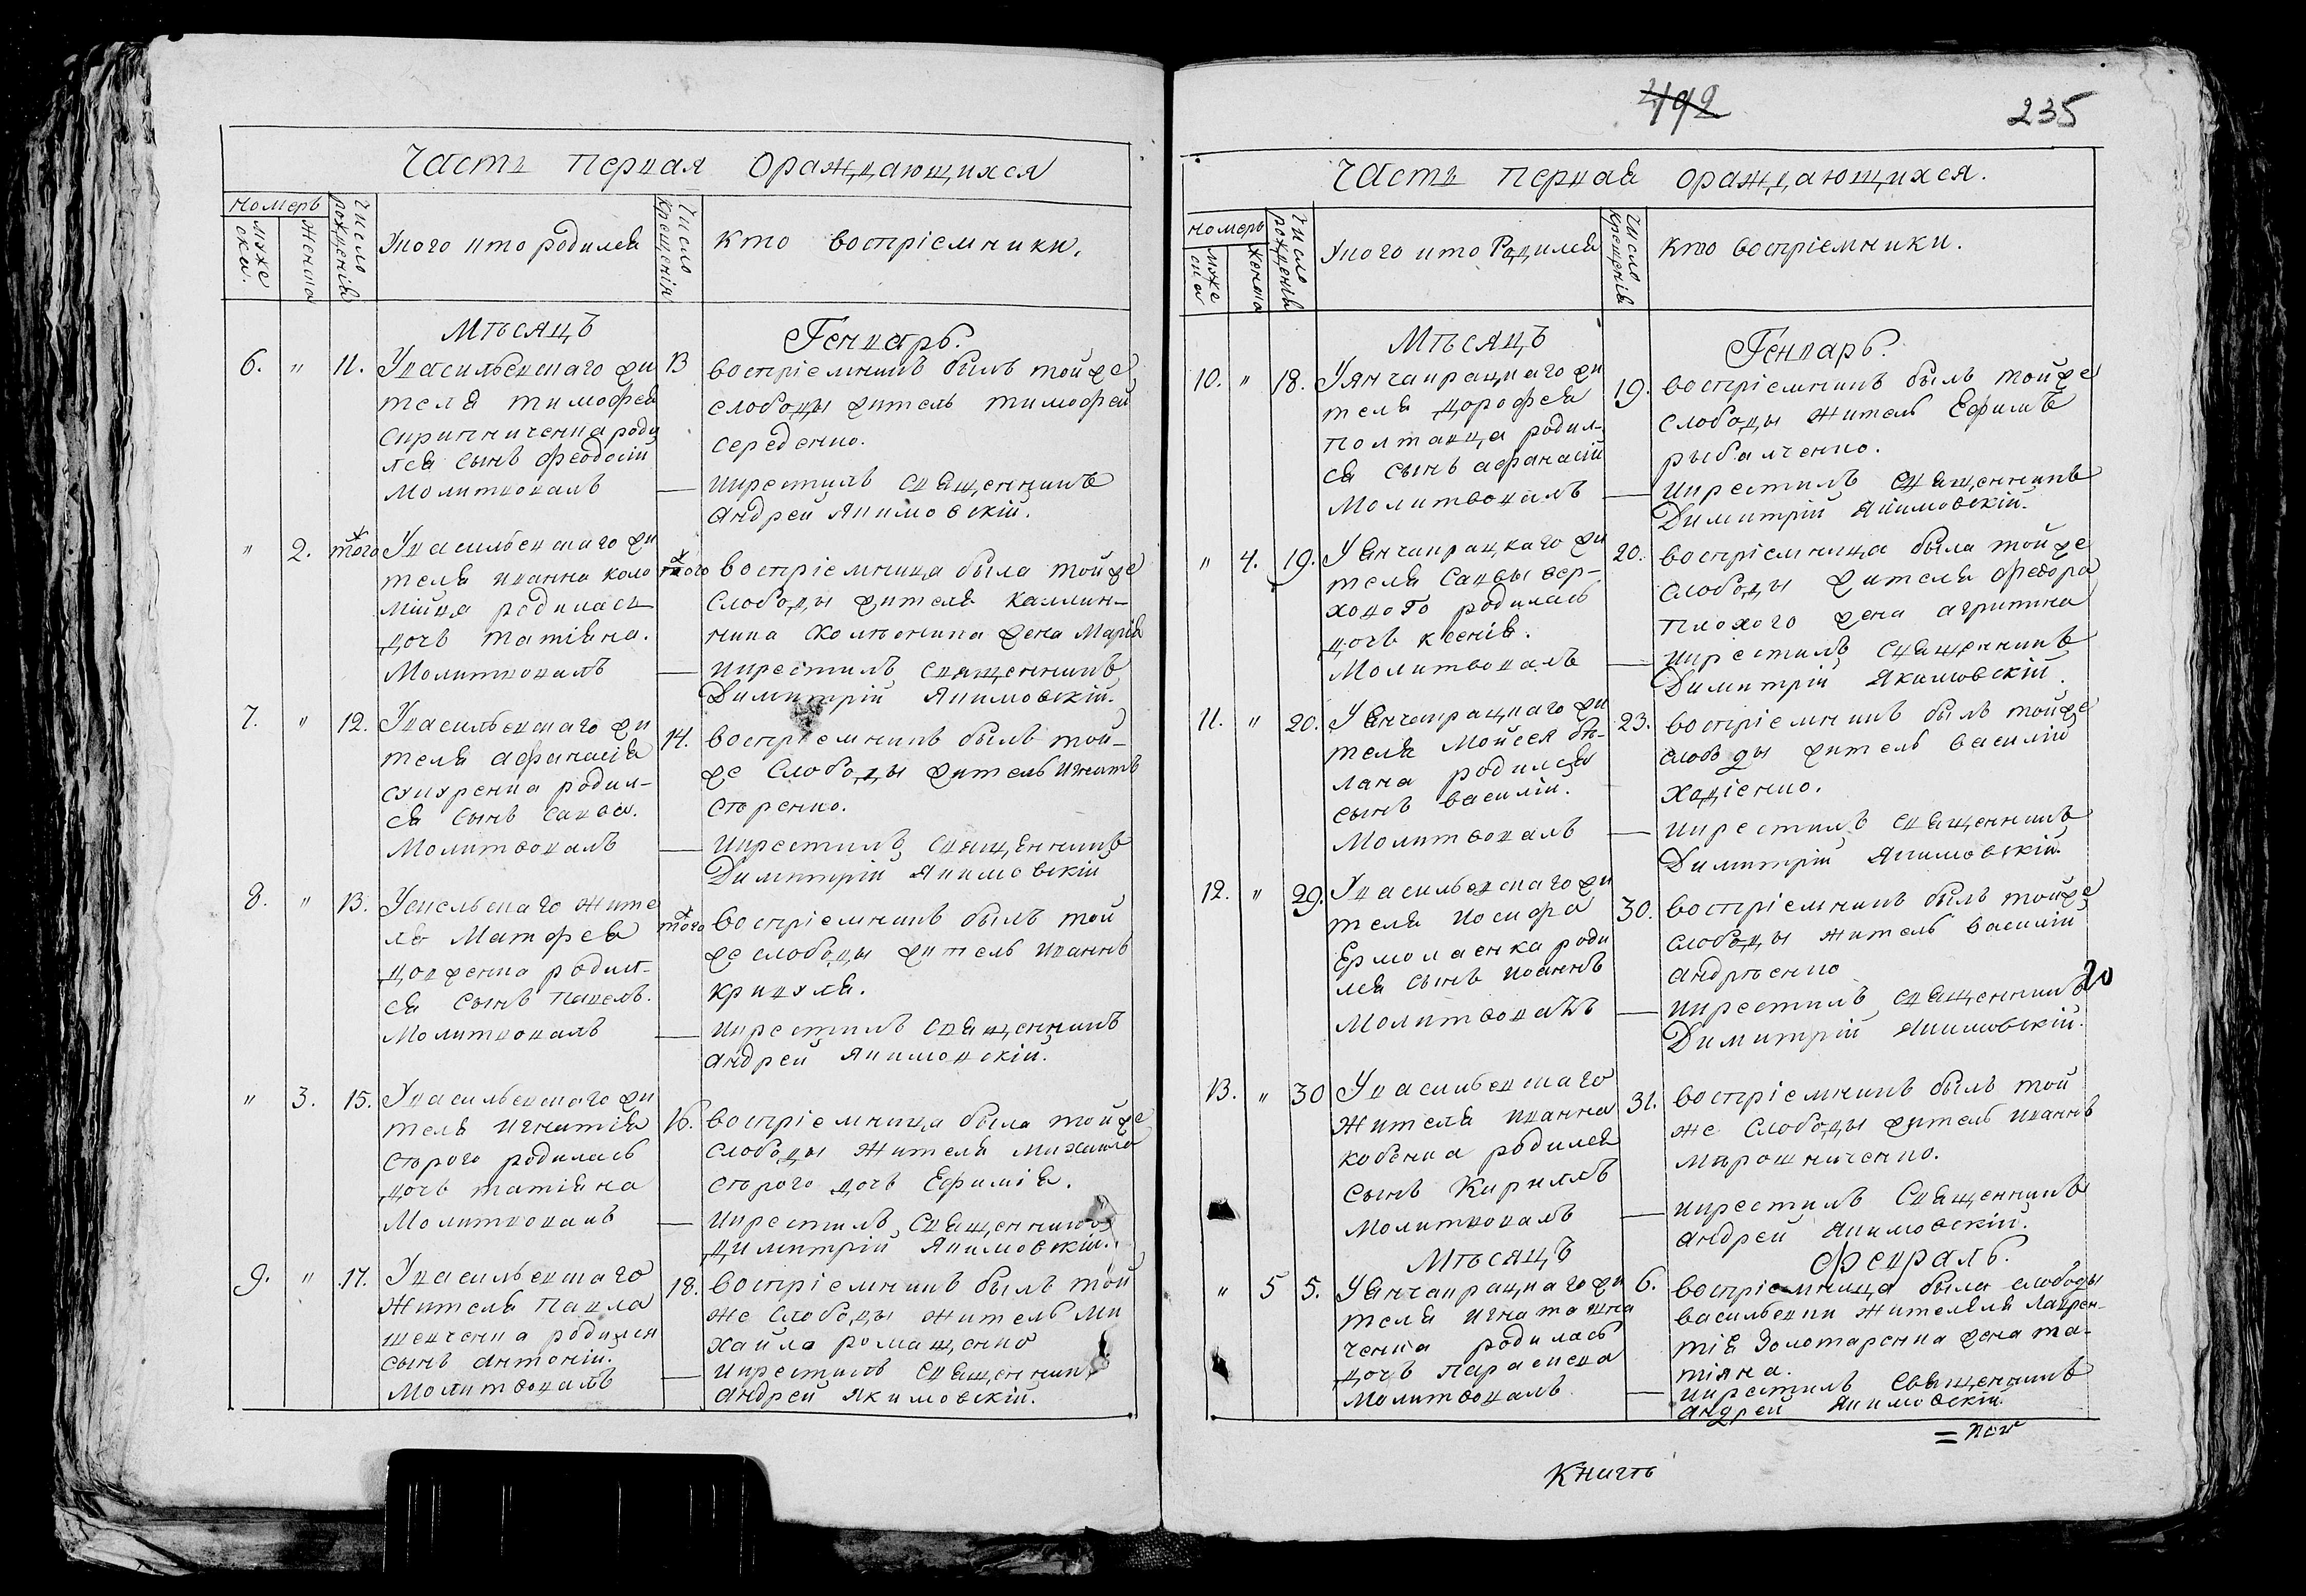 Часть первая ораждающихся
номеръ
муже
ска.
женска
Число
рожденія
Укого кто родился
Число
крещенія
кто воспріемники.
Мѣсяцъ
Генварь.
6. " 11. Увасильевскаго жи
теля тимофея
родил
лся сынъ феодосій
Молитвовалъ
13 воспріемникъ былъ тойже
слободы житель тимофей
середенко.
— икрестилъ священникъ
андрей Якимовскій.
" 2. тогож Увасильевскаго жи
теля иванна коло
мійца родилась
дочь татіяна.
Молитвовалъ
тогож воспріемница была тойже
Слободы жителя каллин-
ника жена Марія
— икрестилъ священникъ
Димитрій Якимовскій.
7. " 12. Увасильевскаго жи
теля афанасія
родил-
ся сынъ савва.
Молитвовалъ
14. воспріемникъ былъ той-
же Слободы житель игнатъ
сторенко.
— икрестилъ священникъ
Димитрій Якимовскій
8. " 13. жите
ля Матфея
довженка родил-
ся сынъ павелъ.
Молитвовалъ
тогож воспріемникъ былъ той
же слободы житель иваннъ
кривуля.
— икрестилъ священникъ
андрей Якимовскій.
" 3. 15. Увасильевскаго жи
теля игнатія
старого родилась
дочь татіяна
Молитвовалъ
16. воспріемница была тойже
слободы жителя михаила
старого дочь Ефимія.
— икрестилъ священникъ
димитрій Якимовскій.
9. " 17. Увасильевскаго
жителя павла
шевченка родился
сынъ антоній.
Молитвовалъ
18. воспріемникъ былъ той
же слободы житель ми
хаила ромащенко
— икрестилъ священникъ
андрей Якимовскій.
492
235
Часть первая ораждающихся.
номеръ
муже
ска
женска
Число
рожденія
Укого кто Родился
Число
крещенія
Кто воспріемники.
Мѣсяцъ
Генварь.
10. " 18. Уянчакрацкаго жи
теля дорофея
полтавца родил-
ся сынъ афанасій
Молитвовалъ
19. воспріемникъ былъ тойже
слободы житель Ефимъ
рыбалченко.
— икрестилъ священникъ
Димитрій Якимовскій.
" 4. 19. Уянчакрацкаго жи
теля саввы вер-
хового родилась
дочь ксенія.
Молитвовалъ
20. воспріемница была тойже
слободы жителя федора
плохого жена агрипина
— икрестилъ священникъ
Димитрій Якимовскій.
11. " 20. Уянчакрацкаго жи
теля Мойсея бѣ-
лана родился
сынъ василій.
Молитвовалъ
23. воспріемникъ былъ тойже
слободы житель василій
ходіенко.
— икрестилъ священникъ
Димитрій Якимовскій.
12. " 29. Увасильевскаго жи
теля иосифа
Ермолаенка роди
лся сынъ иоаннъ
Молитвовалъ
30. воспріемникъ былъ тойже
слободы житель василій
андрѣенко
— икрестилъ священникъ
Димитрій Якимовскій.
20
13. " 30 Увасильевскаго
жителя иванна
кобенка родился
сынъ Кириллъ
Молитвовалъ
31. воспріемникъ былъ той
же Слободы житель иваннъ
мирошниченко.
— икрестилъ Священникъ
андрей Якимовскій.
Мѣсяцъ
Февраль.
" 5 5. Уянчакрацкаго жи
теля
ченка родилась
дочь параскева
Молитвовалъ
6. воспріемница была слободы
васильевки жителя Лаврен-
тія Золотаренка жена та-
тіяна.
— икрестилъ священникъ
андрей Якимовскій.
Книгѣ